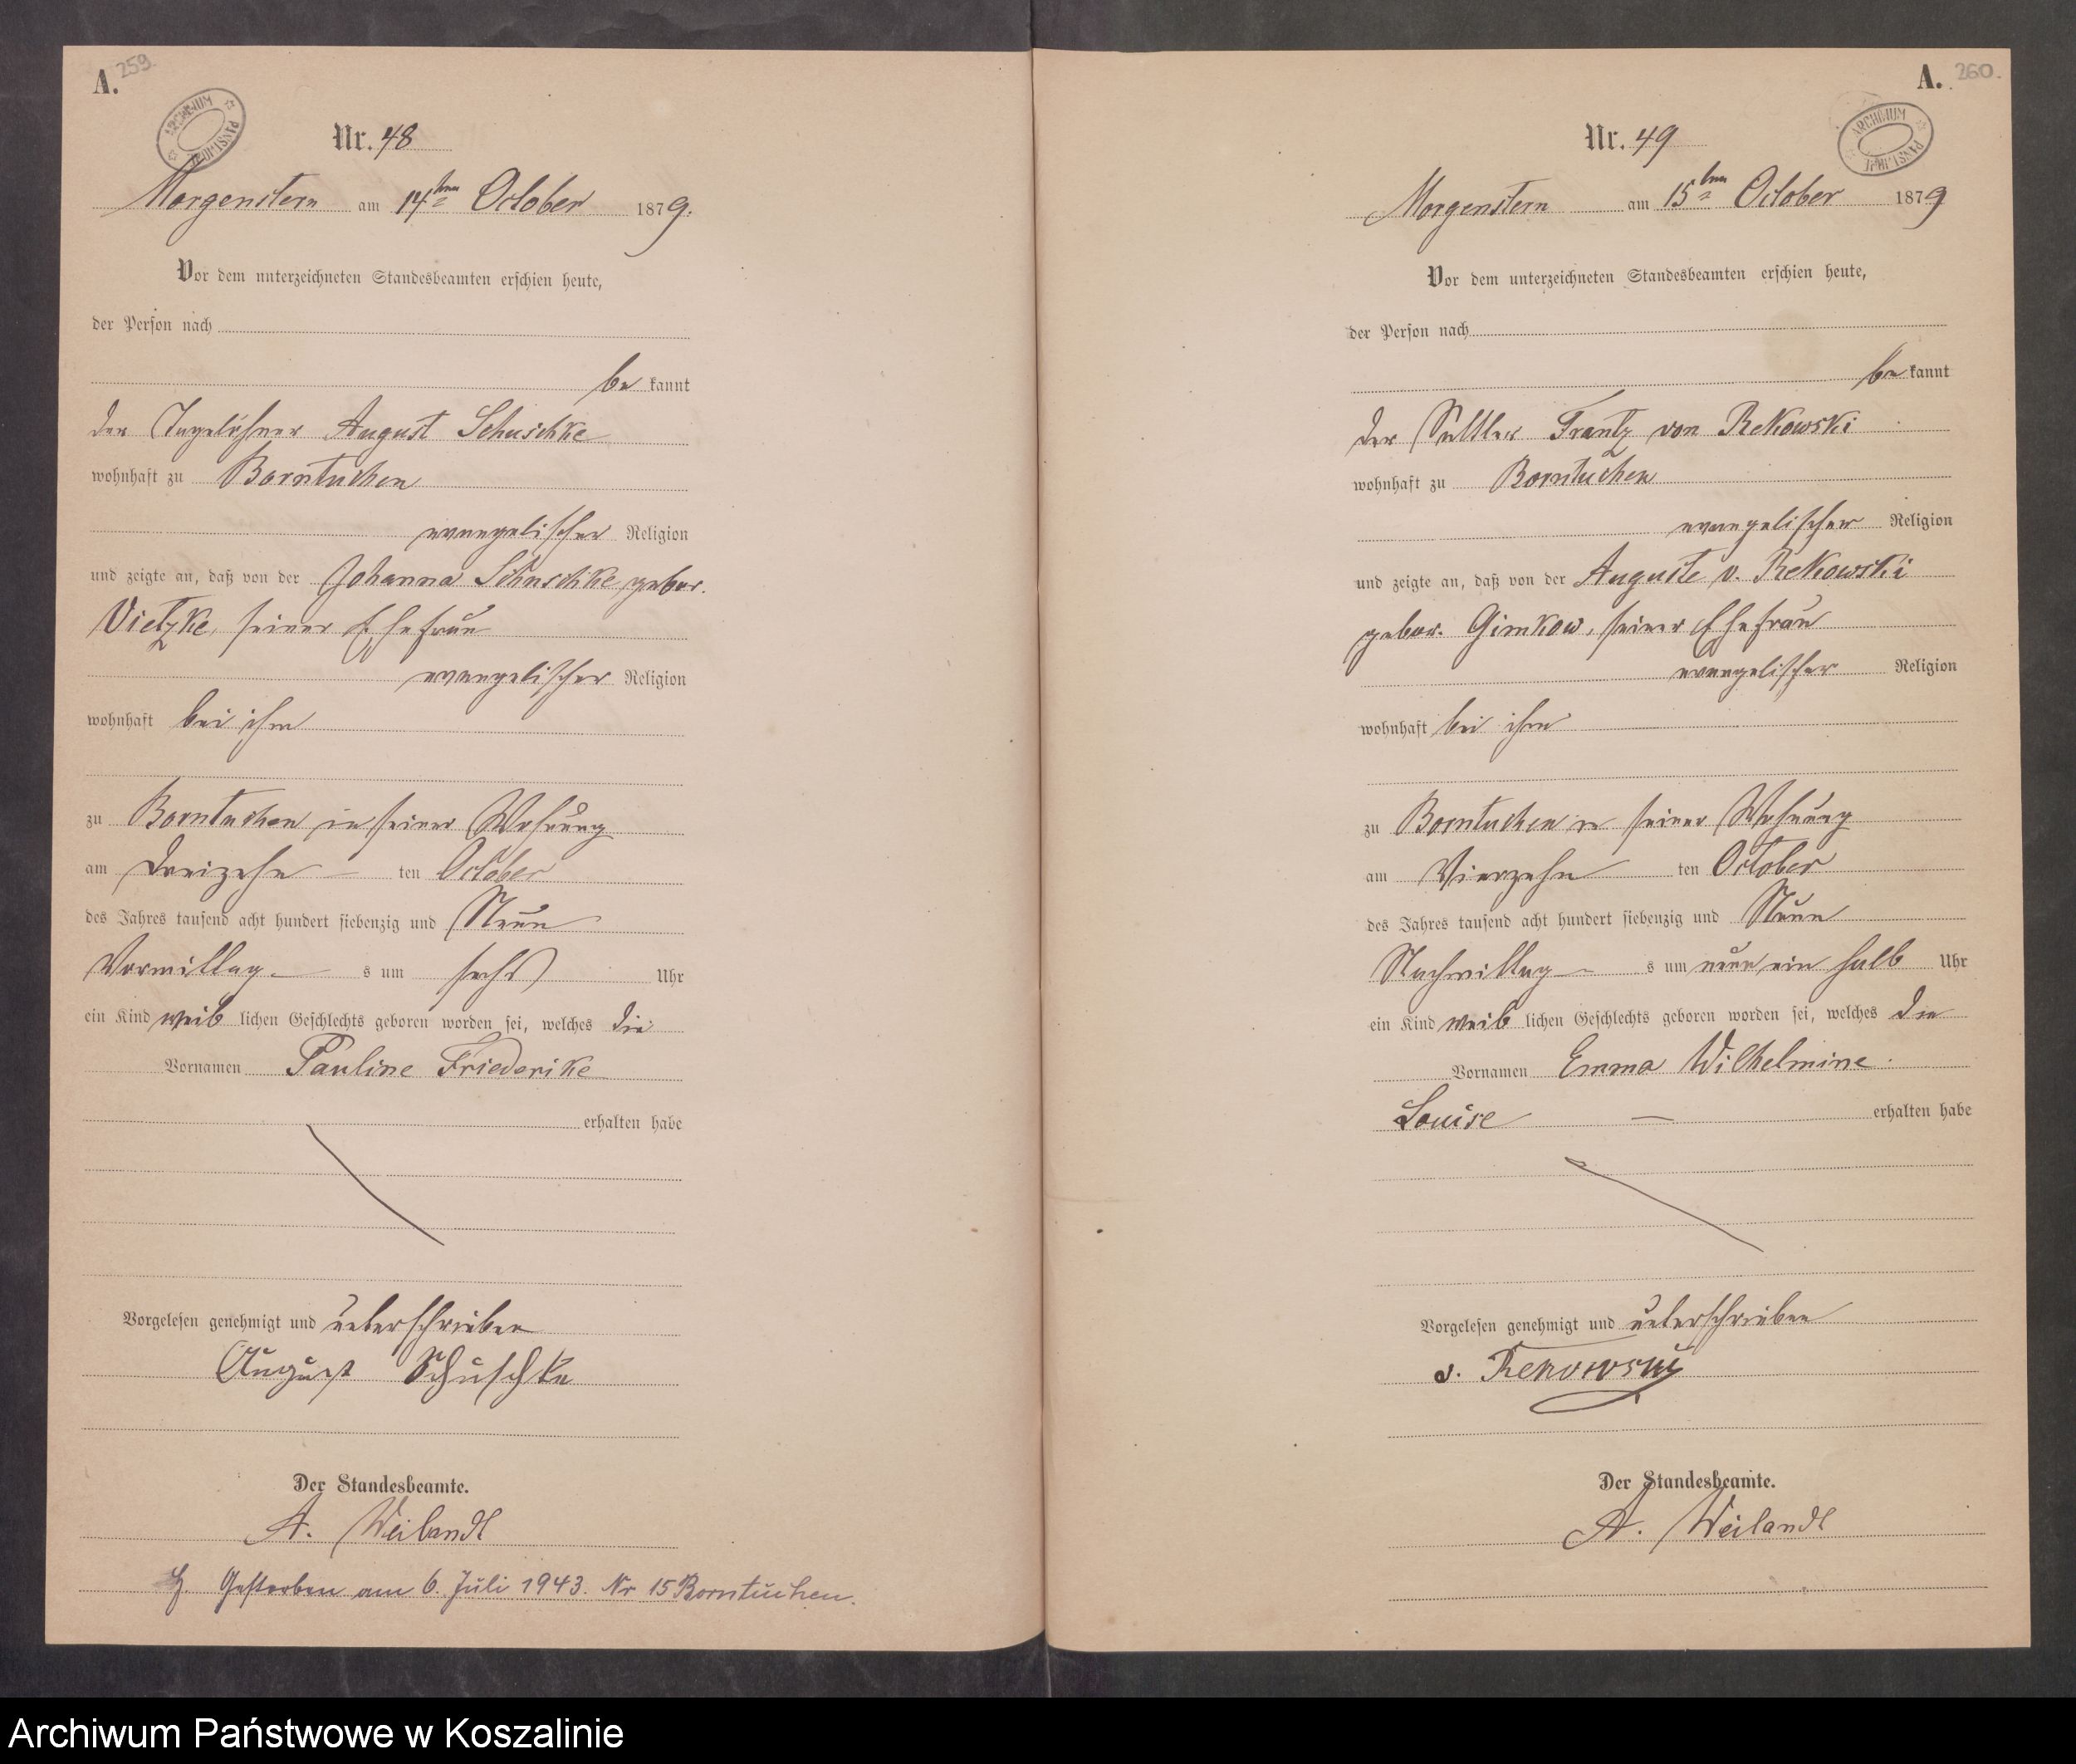 A. 259.
ARCHIWUM PAŃSTWOWE
Nr. 48
Morgenstern am 14ten October 1879.
Vor dem unterzeichneten Standesbeamten erschien heute,
der Person nach
be kannt
der Tagelöhner August Schuschke
wohnhaft zu Borntuchen
evangelischer Religion
und zeigte an, daß von der Johanna Schuschke gebor.
Vietzke, seiner Ehefrau
evangelischer Religion
wohnhaft bei ihm
zu Borntuchen in seiner Wohnung
am dreizehn ten October
des Jahres tausend acht hundert siebenzig und Neun
Vormittag s um sechs Uhr
ein Kind weib lichen Geschlechts geboren worden sei, welches die
Vornamen Pauline Friederike
erhalten habe
Vorgelesen genehmigt und unterschrieben
August Schuschke
Der Standesbeamte.
A. Weilandt
Gestorben am 6. Juli 1943. Nr 15 Borntuchen.
A. 260.
ARCHIWUM PAŃSTWOWE
Nr. 49
Morgenstern am 15ten October 1879
Vor dem unterzeichneten Standesbeamten erschien heute,
der Person nach
be kannt
der Sattler Frantz von Rekowski
wohnhaft zu Borntuchen
evangelischer Religion
und zeigte an, daß von der Auguste v. Rekowski
gebor. Gimkow, seiner Ehefrau
evangelischer Religion
wohnhaft bei ihm
zu Borntuchen in seiner Wohnung
am Vierzehn ten October
des Jahres tausend acht hundert siebenzig und Neun
Nachmittag s um neun ein halb Uhr
ein Kind weib lichen Geschlechts geboren worden sei, welches die
Vornamen Emma Wilhelmine
Louise erhalten habe
Vorgelesen genehmigt und unterschrieben
v. Rekowski
Der Standesbeamte.
A. Weilandt
Archiwum Państwowe w Koszalinie